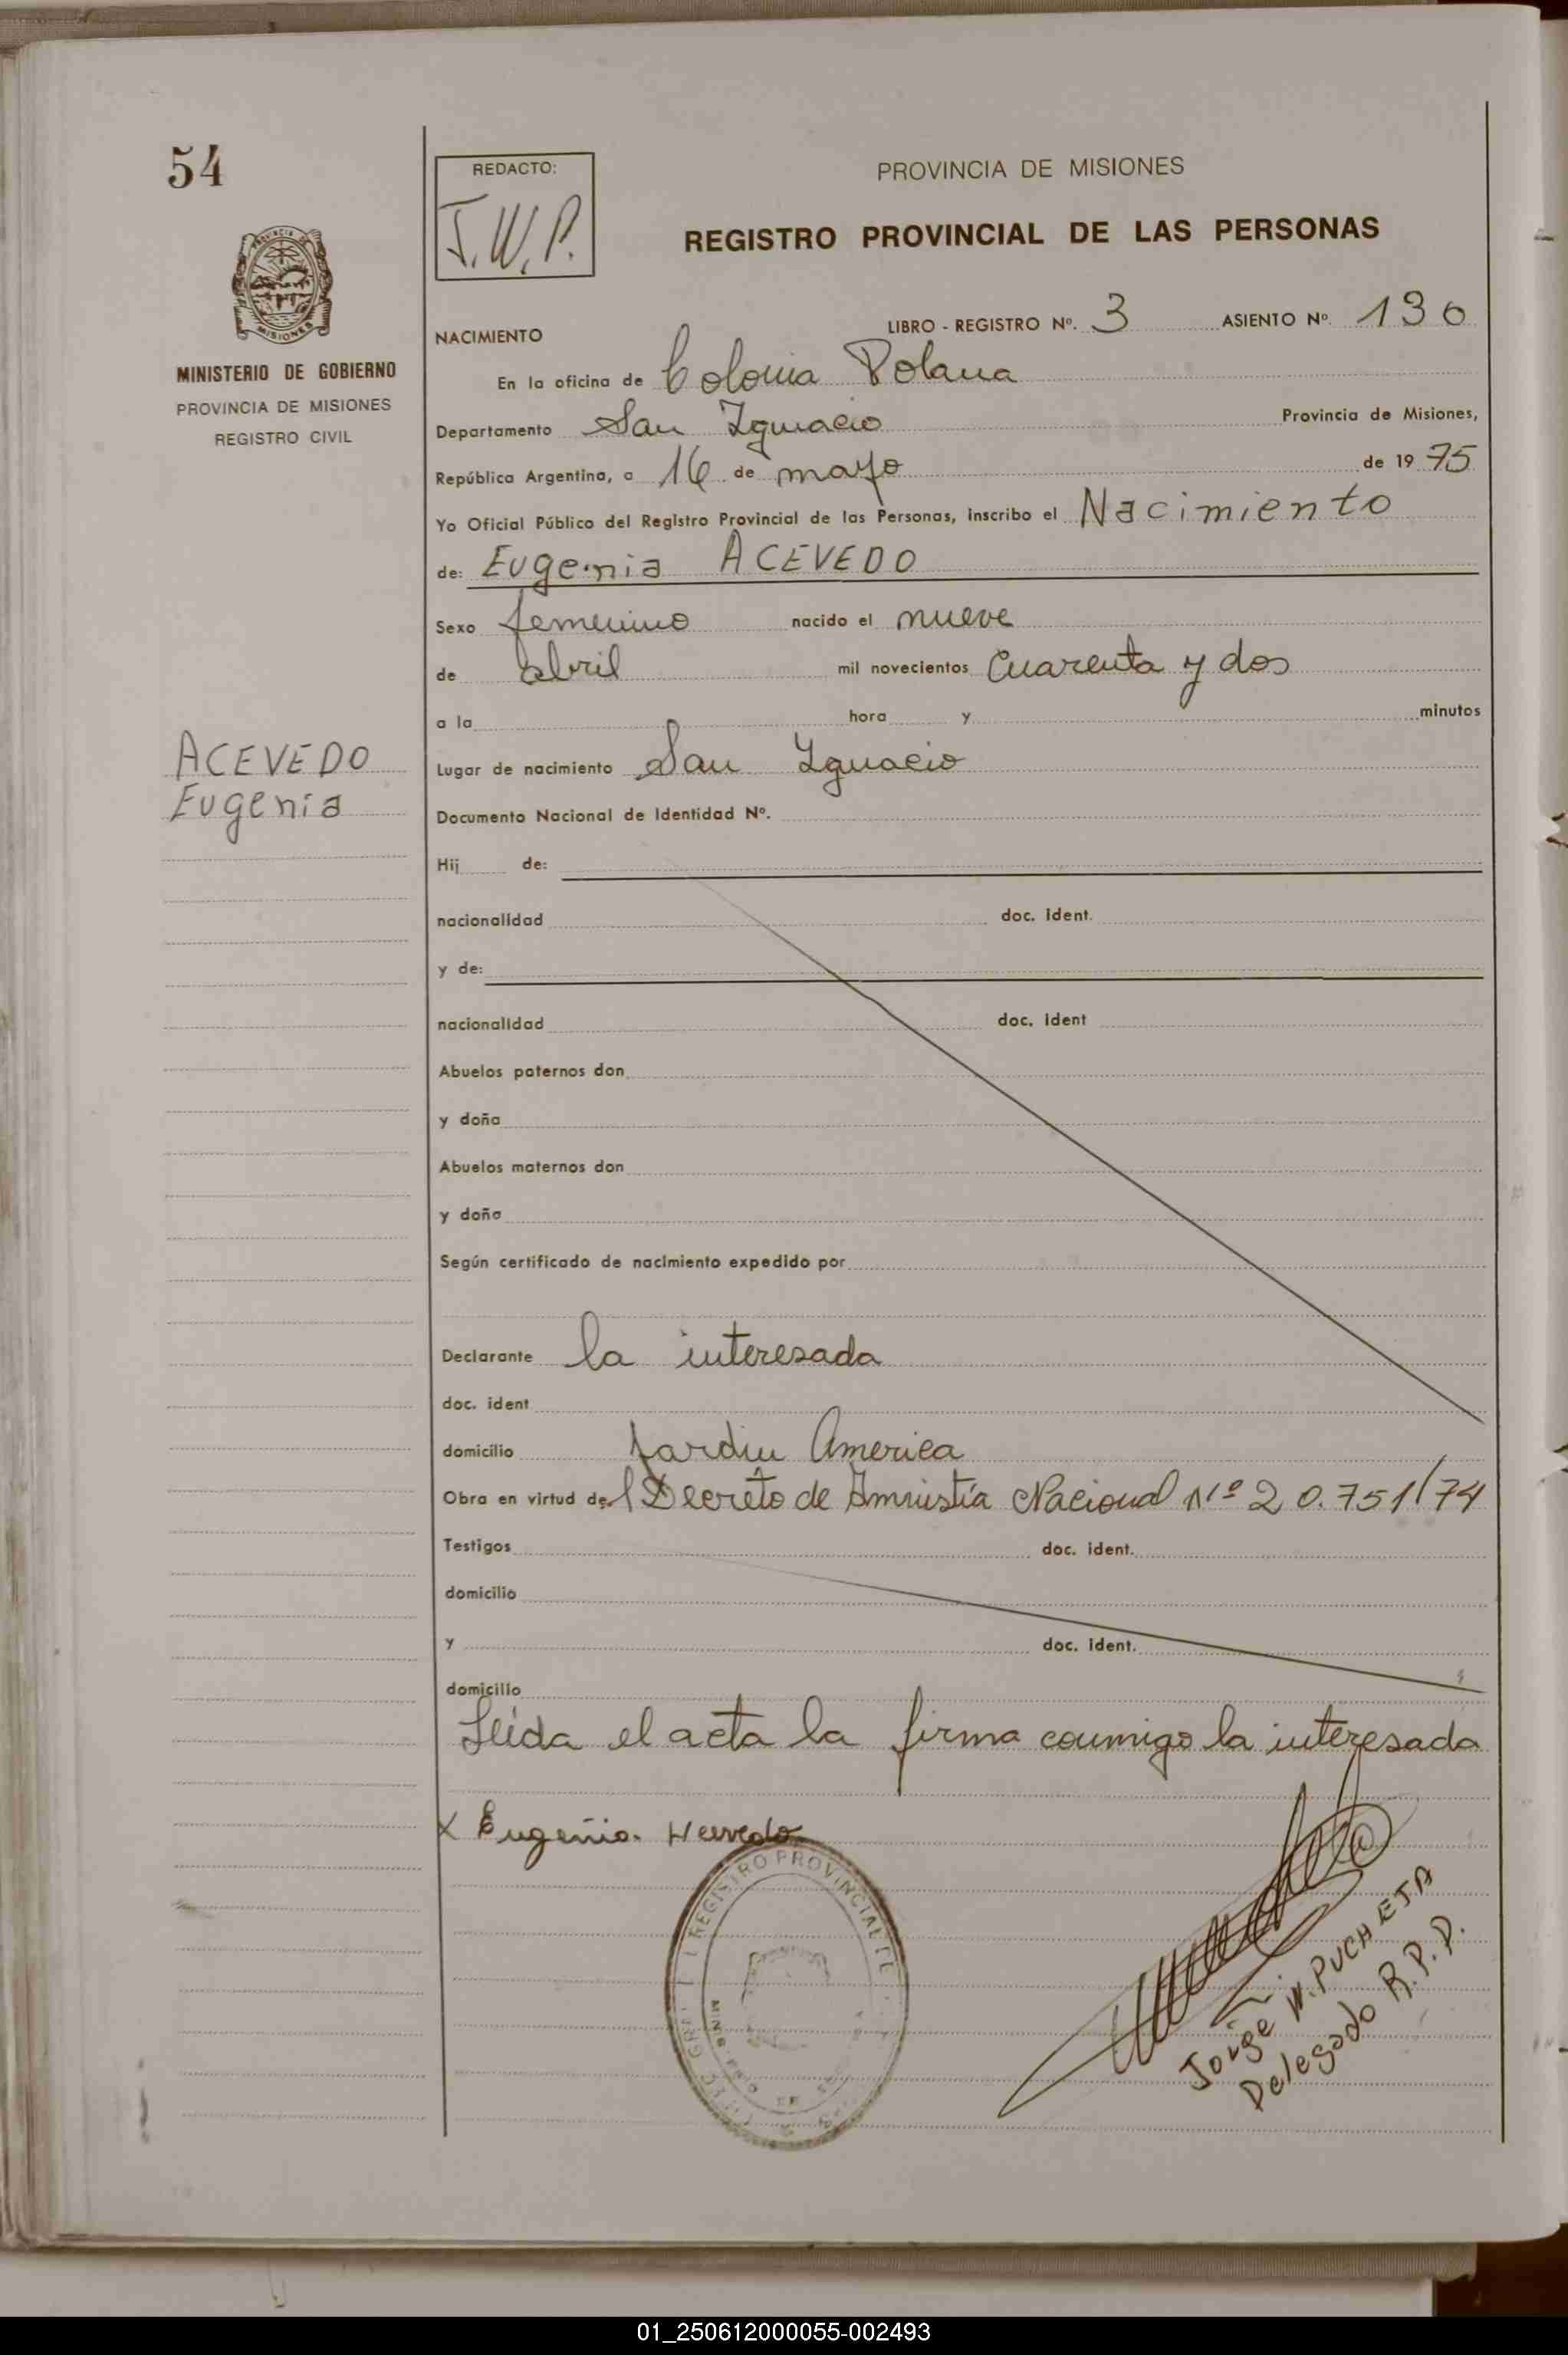 54
PROVINCIA DE
MISIONES
MINISTERIO DE GOBIERNO
PROVINCIA DE MISIONES
REGISTRO CIVIL
ACEVEDO
Eugenia
REDACTO:
J.W.P.
PROVINCIA DE MISIONES
REGISTRO PROVINCIAL DE LAS PERSONAS
NACIMIENTO LIBRO - REGISTRO Nº. 3 ASIENTO Nº. 130
En la oficina de Colonia Polana
Departamento San Ignacio Provincia de Misiones,
República Argentina, a 16 de mayo de 1975
Yo Oficial Público del Registro Provincial de las Personas, inscribo el Nacimiento
de: Eugenia ACEVEDO
Sexo femenino nacido el nueve
de abril mil novecientos cuarenta y dos
a la hora y minutos
Lugar de nacimiento San Ignacio
Documento Nacional de Identidad Nº.
Hij de:
nacionalidad doc. ident.
y de:
nacionalidad doc. ident
Abuelos paternos don
y doña
Abuelos maternos don
y doña
Según certificado de nacimiento expedido por
Declarante la interesada
doc. ident
domicilio Jardin America
Obra en virtud del Decreto de Amnistía Nacional Nº 20.751/74
Testigos doc. ident.
domicilio
y doc. ident.
domicilio
Leída el acta la firma conmigo la interesada
x Eugenia Acevedo
REGISTRO PROVINCIAL
Jorge W. PUCHETA
Delegado R.P.P.
01_250612000055-002493